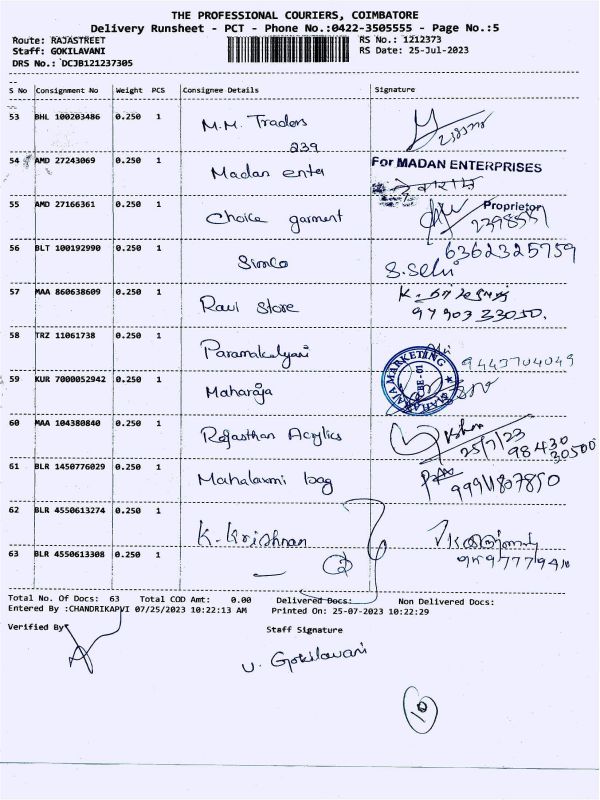 THE PROFESSIONAL COURIERS, COIMBATORE
Delivery Runsheet - PCT - Phone No.:0422-3505555 - Page No.:5
Route: RAJASTREET RS No.: 1212373
Staff: GOKILAVANI RS Date: 25-Jul-2023
DRS No.: DCJB121237305
S No Consignment No Weight PCS Consignee Details Signature
53 BHL 100203486 0.250 1 M.M. Traders
239
54 AMD 27243069 0.250 1 Madan enter For MADAN ENTERPRISES
Proprietor
55 AMD 27166361 0.250 1 Choice garment
56 BLT 100192990 0.250 1 Simco 6362325759
S. Selvi
57 MAA 860638609 0.250 1 Ravi Store
97903 33050.
58 TRZ 11061738 0.250 1 Paramakalyani 9443704049
59 KUR 7000052942 0.250 1 Maharaja MAHARAJA MARKETING CBE-01
60 MAA 104380840 0.250 1 Rajasthan Acrylics
25/7/23
98430
30500
61 BLR 1450776029 0.250 1 Mahalaxmi bag
62 BLR 4550613274 0.250 1 K. Krishnan
63 BLR 4550613308 0.250 1
Total No. Of Docs: 63 Total COD Amt: 0.00 Delivered Docs: Non Delivered Docs:
Entered By :CHANDRIKAPVI 07/25/2023 10:22:13 AM Printed On: 25-07-2023 10:22:29
Verified By
Staff Signature
U. Gokilavani
10